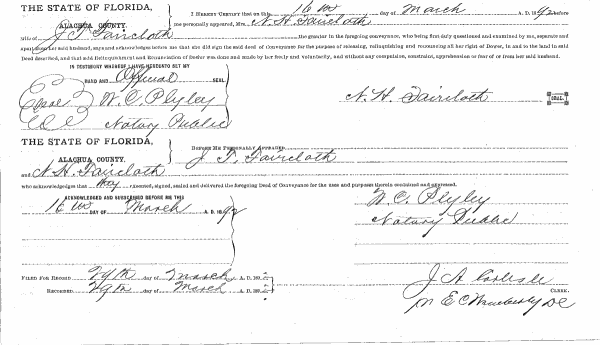 THE STATE OF FLORIDA,
ALACHUA COUNTY.
I HEREBY CERTIFY that on this 16th day of March A. D. 1892 before
me personally appeared, Mrs. N. H. Faircloth
Wife of J. T. Faircloth the grantor in the foregoing conveyance, who being first duly questioned and examined by me, separate and
apart from her said husband, says and acknowledges before me that she did sign the said deed of Conveyance for the purpose of releasing, relinquishing and renouncing all her right of Dower, in and to the land in said
Deed described, and that said Relinquishment and Renunciation of Dower was done and made by her freely and voluntarily, and without any compulsion, constraint, apprehension or fear of or from her said husband.
IN TESTIMONY WHEREOF I HAVE HEREUNTO SET MY
HAND AND Official SEAL
Seal W. C. Plyley
Notary Public
N. H. Faircloth SEAL
THE STATE OF FLORIDA,
ALACHUA COUNTY.
BEFORE ME PERSONALLY APPEARED J. T. Faircloth
and N. H. Faircloth
who acknowledges that they executed, signed, sealed and delivered the foregoing Deed of Conveyance for the uses and purposes therein contained and expressed.
ACKNOWLEDGED AND SUBSCRIBED BEFORE ME THIS
16th DAY OF March A. D. 1892
W. C. Plyley
Notary Public
FILED FOR RECORD 29th day of March A. D. 189
RECORDED 29th day of March A. D. 189
J A Carlisle
CLERK.
E C DC